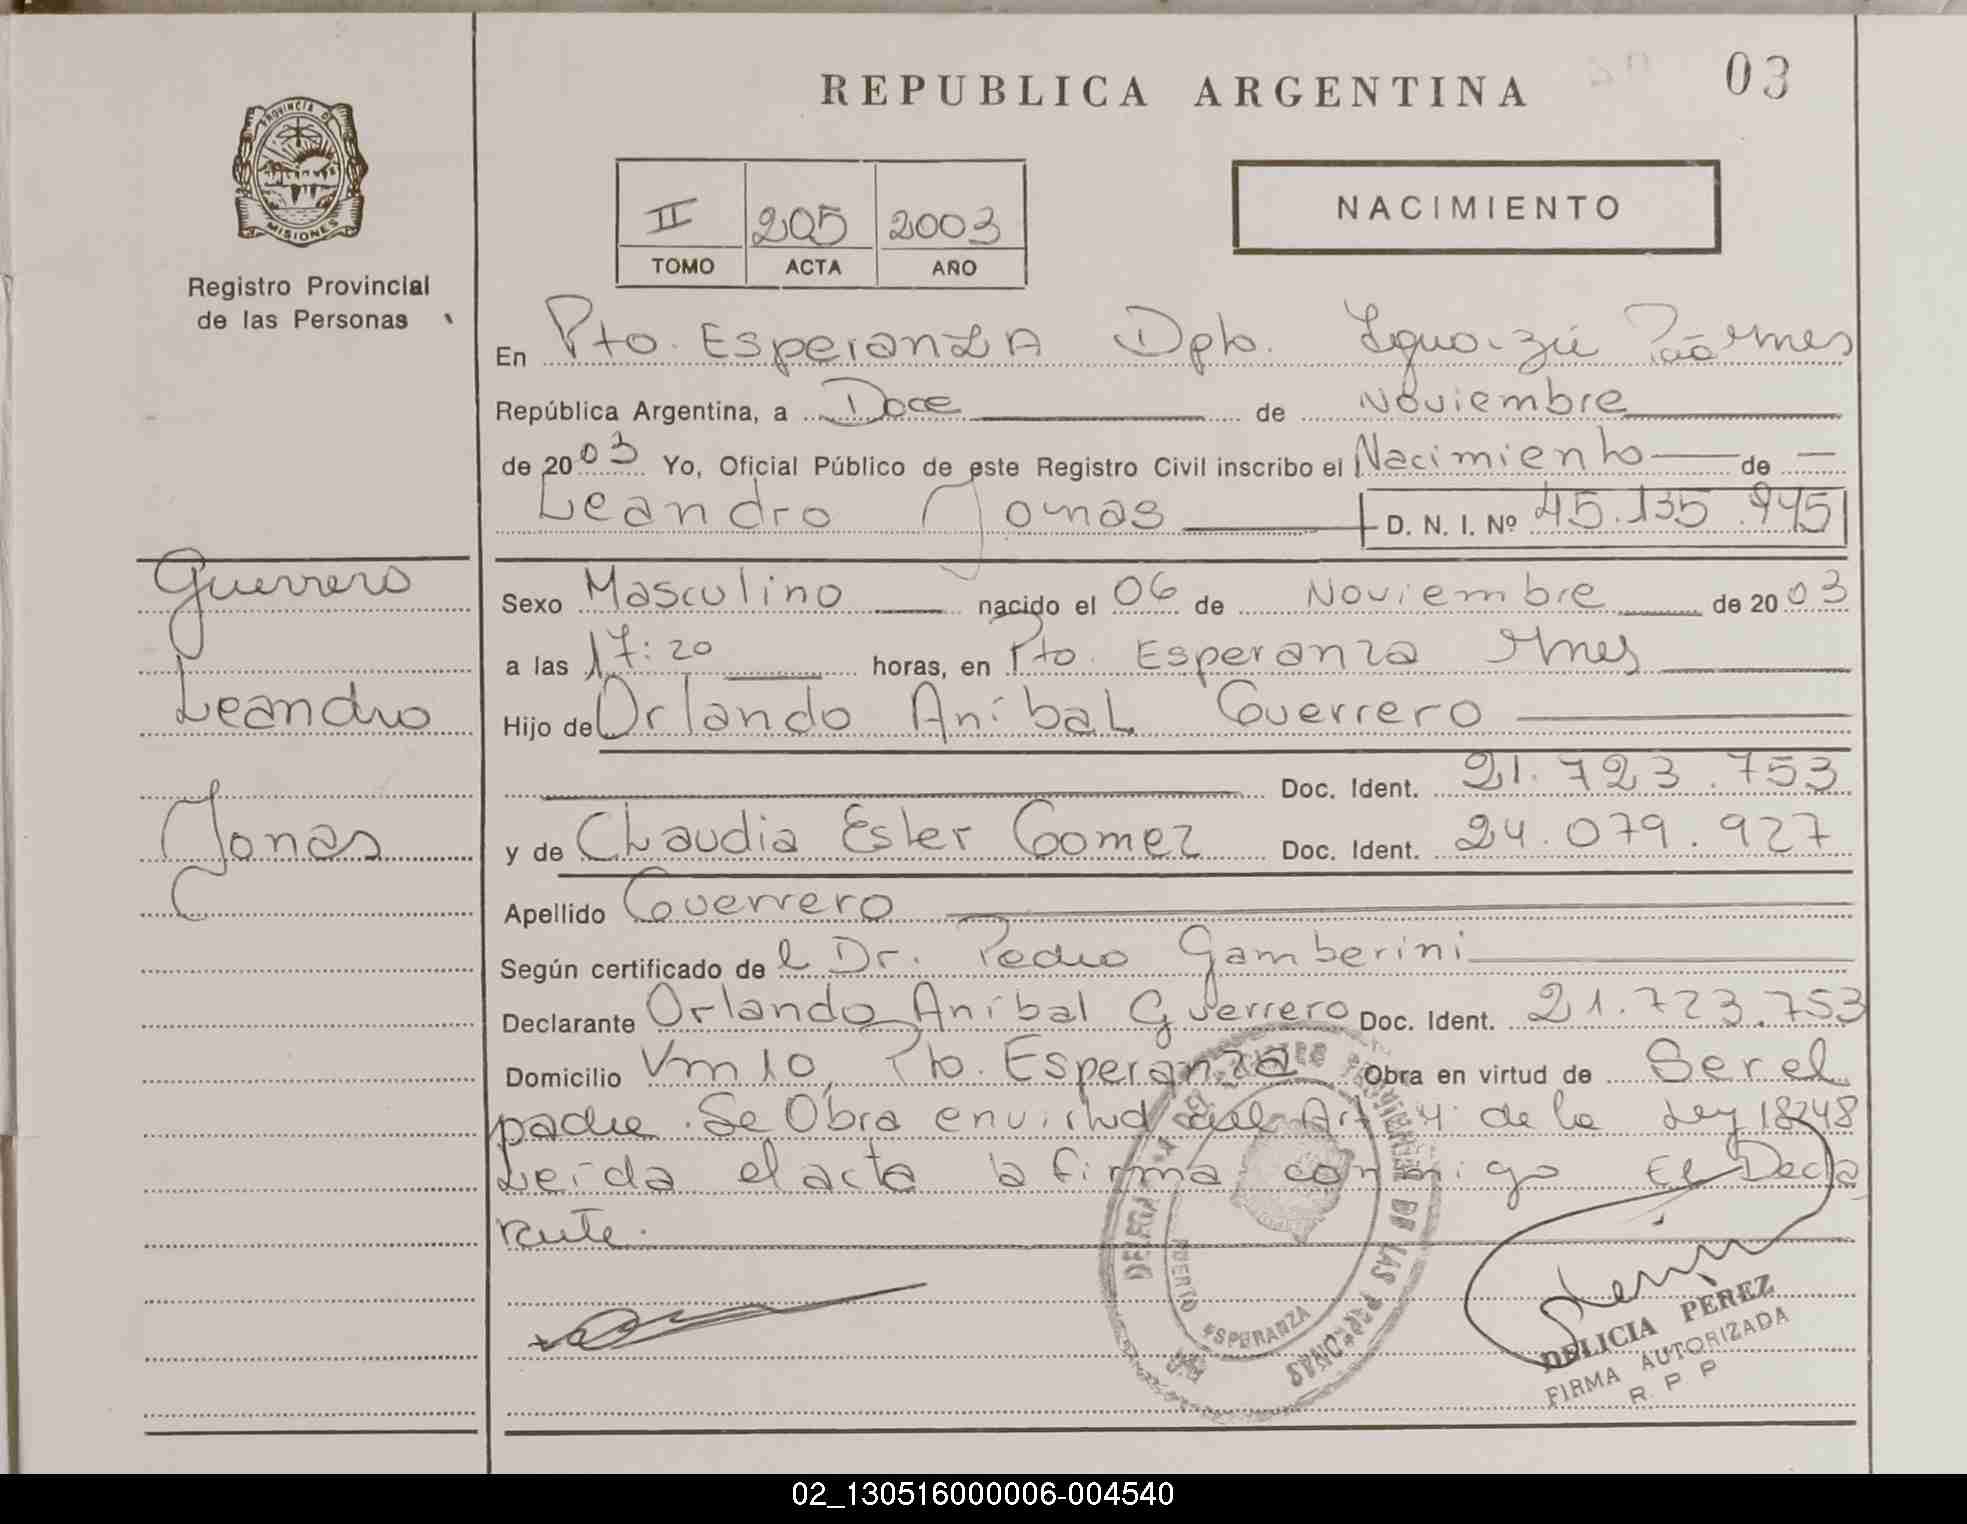 REPUBLICA ARGENTINA
03
PROVINCIA DE
MISIONES
Registro Provincial
de las Personas
II 205 2003
TOMO ACTA AÑO
NACIMIENTO
En Pto. Esperanza Dpto. Iguazú Mnes
República Argentina, a Doce de Noviembre
de 2003 Yo, Oficial Público de este Registro Civil inscribo el Nacimiento de
Leandro Jonas D. N. I. Nº 45.135.945
Guerrero
Leandro
Jonas
Sexo Masculino nacido el 06 de Noviembre de 2003
a las 17:20 horas, en Pto. Esperanza Mnes
Hijo de Orlando Aníbal Guerrero
Doc. Ident. 21.723.753
y de Claudia Ester Gomez Doc. Ident. 24.079.927
Apellido Guerrero
Según certificado de l Dr. Pedro Gamberini
Declarante Orlando Aníbal Guerrero Doc. Ident. 21.723.753
Domicilio Vm 10, Pto. Esperanza Obra en virtud de Ser el
padre. Se Obra en virtud del Art 4 de la Ley 18248
Leída el acta la firma conmigo El Decla
rante.
DE LAS PERSONAS
PUERTO ESPERANZA
DELICIA PEREZ
FIRMA AUTORIZADA
R. P. P
02_130516000006-004540